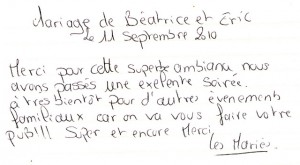 Mariage de Béatrice et Eric
Le 11 Septembre 2010
Merci pour cette superbe ambiance nous
avons passés une exelente soirée.
à très bientôt pour d'autres évènements
familiaux car on va vous faire votre
pub!!! Super et encore Merci
Les Mariés.